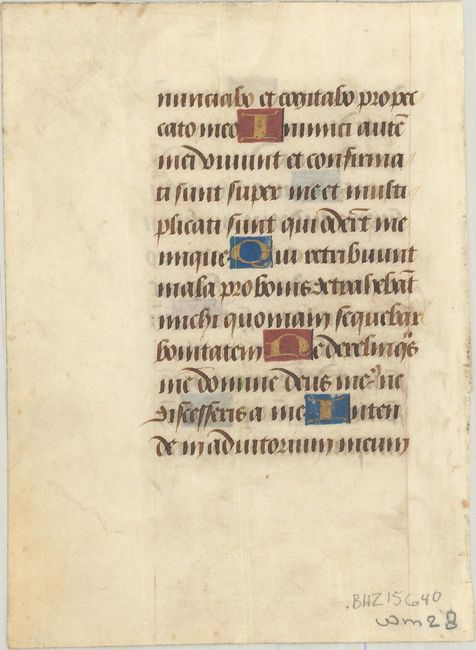 nunciabo et cogitabo pro pec
cato meo Inimici autē
mei vivunt et confirma
ti sunt super me et multi
plicati sunt qui oderūt me
inique Qui retribuunt
mala pro bonis detrahebāt
michi quoniam sequebar
bonitatem Ne derelinqᷤs
me domine deus meꝰ ne
discesseris a me Inten
de in adiutorium meum
.BHZ15640
wm28